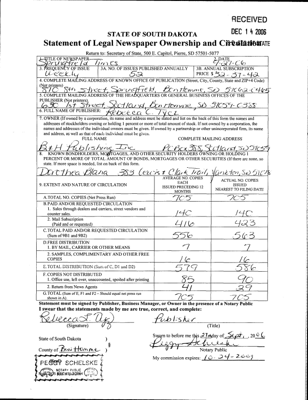 RECEIVED
DEC 14 2006
STATE OF SOUTH DAKOTA
Statement of Legal Newspaper Ownership and Circulation
Return to: Secretary of State, 500 E. Capitol, Pierre, SD 57501-5077
1. TITLE OF NEWSPAPER
2. DATE
Springfield Times
3. FREQUENCY OF ISSUE
3A. NO. OF ISSUES PUBLISHED ANNUALLY
3B. ANNUAL SUBSCRIPTION PRICE $
Weekly
52
4. COMPLETE MAILING ADDRESS OF KNOWN OFFICE OF PUBLICATION (Street, City, County, State and ZIP+4 Code)
810 8th Street, Springfield, Bon Homme, SD
5. COMPLETE MAILING ADDRESS OF THE HEADQUARTERS OF GENERAL BUSINESS OFFICE OF THE PUBLISHER (Not printers)
6. FULL NAME OF PUBLISHER
Rebecca L. Tycz
7. OWNER (If owned by a corporation, its name and address must be stated and also list on the back of this form the names and addresses of stockholders owning or holding 1 percent or more of total amount of stock. If not owned by a corporation, the names and addresses of the individual owners must be given. If owned by a partnership or other unincorporated firm, its name and address, as well as that of each individual must be given.
FULL NAME
COMPLETE MAILING ADDRESS
B&H Publishing Inc.
8. KNOWN BONDHOLDERS, MORTGAGES, AND OTHER SECURITY HOLDERS OWNING OR HOLDING 1 PERCENT OR MORE OF TOTAL AMOUNT OF BONDS, MORTGAGES, OR OTHER SECURITIES (If there are none, so state. If more space is needed, list on back of this form.
9. EXTENT AND NATURE OF CIRCULATION
AVERAGE NO. COPIES EACH ISSUED PRECEDING 12 MONTHS
ACTUAL NO. COPIES ISSUED NEAREST TO FILING DATE
A. TOTAL NO. COPIES (Net Press Run)
705
705
B. PAID AND/OR REQUESTED CIRCULATION
1. Sales through dealers and carriers, street vendors and counter sales.
140
140
2. Mail Subscription (Paid and or requested)
416
423
C. TOTAL PAID AND/OR REQUESTED CIRCULATION (Sum of 9B1 and 9B2)
556
563
D. FREE DISTRIBUTION
1. BY MAIL, CARRIER OR OTHER MEANS
7
7
2. SAMPLES, COMPLIMENTARY AND OTHER FREE COPIES
16
16
E. TOTAL DISTRIBUTION (Sum of C, D1 and D2)
579
586
F. COPIES NOT DISTRIBUTED
1. Office use, left over, unaccounted, spoiled after printing
85
90
2. Return from News Agents
41
29
G. TOTAL (Sum of E, F1 and F2 - Should equal net press run shown in A)
705
705
Statement must be signed by Publisher, Business Manager, or Owner in the presence of a Notary Public
I swear that the statements made by me are true, correct, and complete:
Publisher
(Signature)
(Title)
State of South Dakota )
County of Bon Homme )
Sworn to before me this
Sept. 2006
Notary Public
My commission expires:
PEGGY SCHELSKE
NOTARY PUBLIC